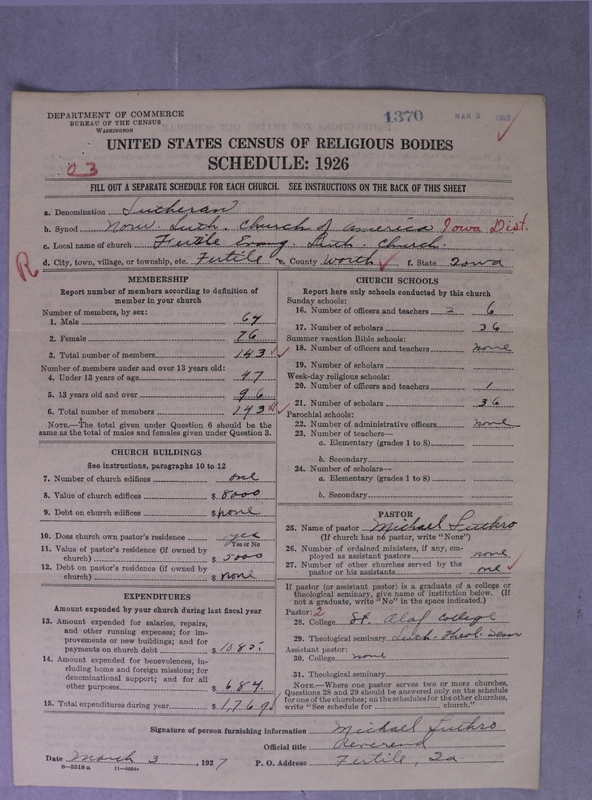 DEPARTMENT OF COMMERCE
BUREAU OF THE CENSUS
WASHINGTON
1370 MAR 5 1927
UNITED STATES CENSUS OF RELIGIOUS BODIES
SCHEDULE: 1926
03
FILL OUT A SEPARATE SCHEDULE FOR EACH CHURCH. SEE INSTRUCTIONS ON THE BACK OF THIS SHEET
a. Denomination Lutheran
b. Synod Norw. Luth. Church of America Iowa Dist.
c. Local name of church Fertile Evang. Luth. Church
d. City, town, village, or township, etc. Fertile e. County Worth f. State Iowa
R
MEMBERSHIP
Report number of members according to definition of
member in your church
Number of members, by sex:
1. Male 67
2. Female 76
3. Total number of members 143
Number of members under and over 13 years old:
4. Under 13 years of age 47
5. 13 years old and over 96
6. Total number of members 143
NOTE.—The total given under Question 6 should be
same as the total of males and females given under Question 3.
CHURCH BUILDINGS
See instructions, paragraphs 10 to 12
7. Number of church edifices one
8. Value of church edifices $ 8000
9. Debt on church edifices $ none
10. Does church own pastor's residence? yes
Yes or No
11. Value of pastor's residence (if owned by
church) $ 5000
12. Debt on pastor's residence (if owned by
church) $ none
EXPENDITURES
Amount expended by your church during last fiscal year
13. Amount expended for salaries, repairs,
and other running expenses; for im-
provements or new buildings; and for
payments on church debt $ 1085.
14. Amount expended for benevolences, in-
cluding home and foreign missions; for
denominational support; and for all
other purposes $ 684.
15. Total expenditures during year $ 1,769.
CHURCH SCHOOLS
Report here only schools conducted by this church
Sunday schools:
16. Number of officers and teachers 6
17. Number of scholars 36
Summer vacation Bible schools:
18. Number of officers and teachers none
19. Number of scholars
Week-day religious schools:
20. Number of officers and teachers 1
21. Number of scholars 36
Parochial schools:
22. Number of administrative officers none
23. Number of teachers—
a. Elementary (grades 1 to 8)
b. Secondary
24. Number of scholars—
a. Elementary (grades 1 to 8)
b. Secondary
PASTOR
25. Name of pastor Michael Luthro
(If church has no pastor, write "None")
26. Number of ordained ministers, if any, em-
ployed as assistant pastors none
27. Number of other churches served by the
pastor or his assistants one
If pastor (or assistant pastor) is a graduate of a college or
theological seminary, give name of institution below. (If
not a graduate, write "No" in the space indicated.)
Pastor: 2
28. College St. Olaf College
29. Theological seminary Luth. Theol. Sem
Assistant pastor:
30. College none
31. Theological seminary
NOTE.—Where one pastor serves two or more churches,
Questions 28 and 29 should be answered only on the schedule
for one of the churches; on the schedules for the other churches,
write "See schedule for church."
Signature of person furnishing information Michael Luthro
Official title Reverend
Date March 3, 1927 P. O. Address Fertile, Ia.
8-5518a